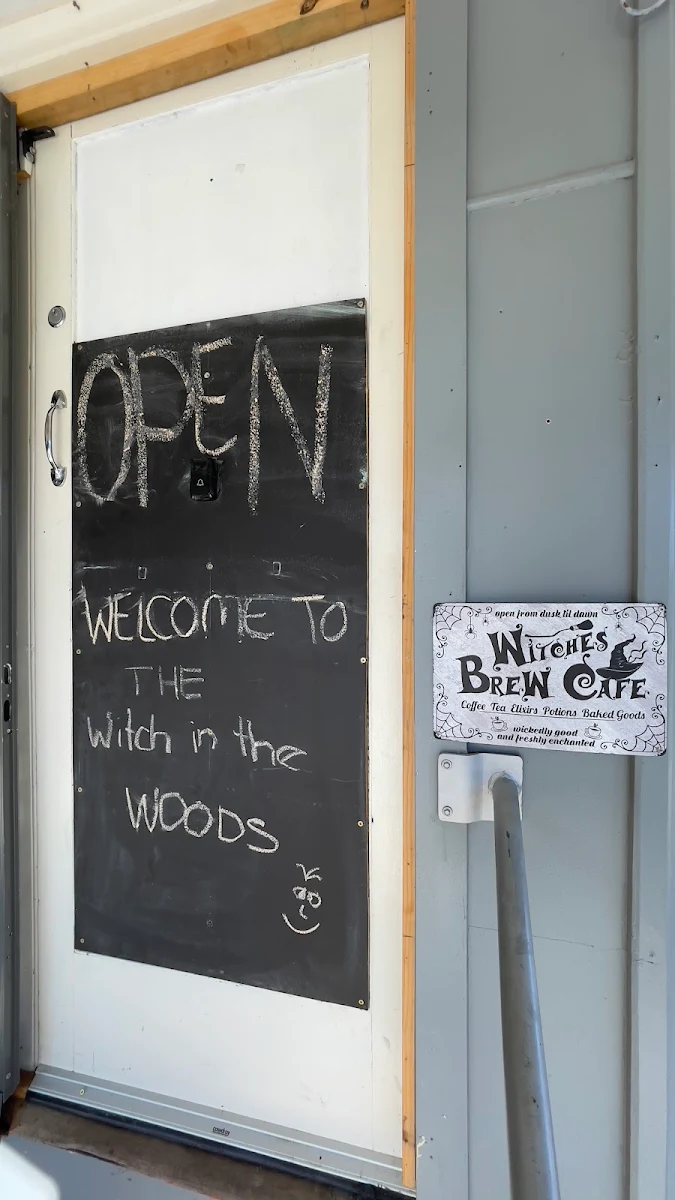 OPEN
WELCOME TO
THE
Witch in the
WOODS
open from dusk til dawn
WITCHES
BREW CAFE
Coffee Tea Elixirs Potions Baked Goods
wickedly good
and freshly enchanted